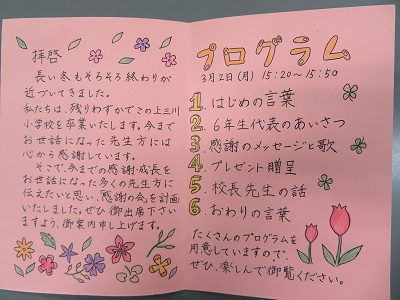 拝啓
長い冬もそろそろ終わりが
近づいてきました。
私たちは、残りわずかでこの上三川
小学校を卒業いたします。今まで
お世話になった先生方には
心から感謝しています。
そこで、今までの感謝・成長を
お世話になった多くの先生方に
伝えたいと思い、感謝の会を計画
いたしました。ぜひ御出席下さい
ますよう、御案内申し上げます。
プログラム
3月2日(月) 15:20〜15:50
1.はじめの言葉
2.6年生代表のあいさつ
3.感謝のメッセージと歌
4.プレゼント贈呈
5.校長先生の話
6.おわりの言葉
たくさんのプログラムを
用意していますので、
ぜひ、楽しんで御覧ください。